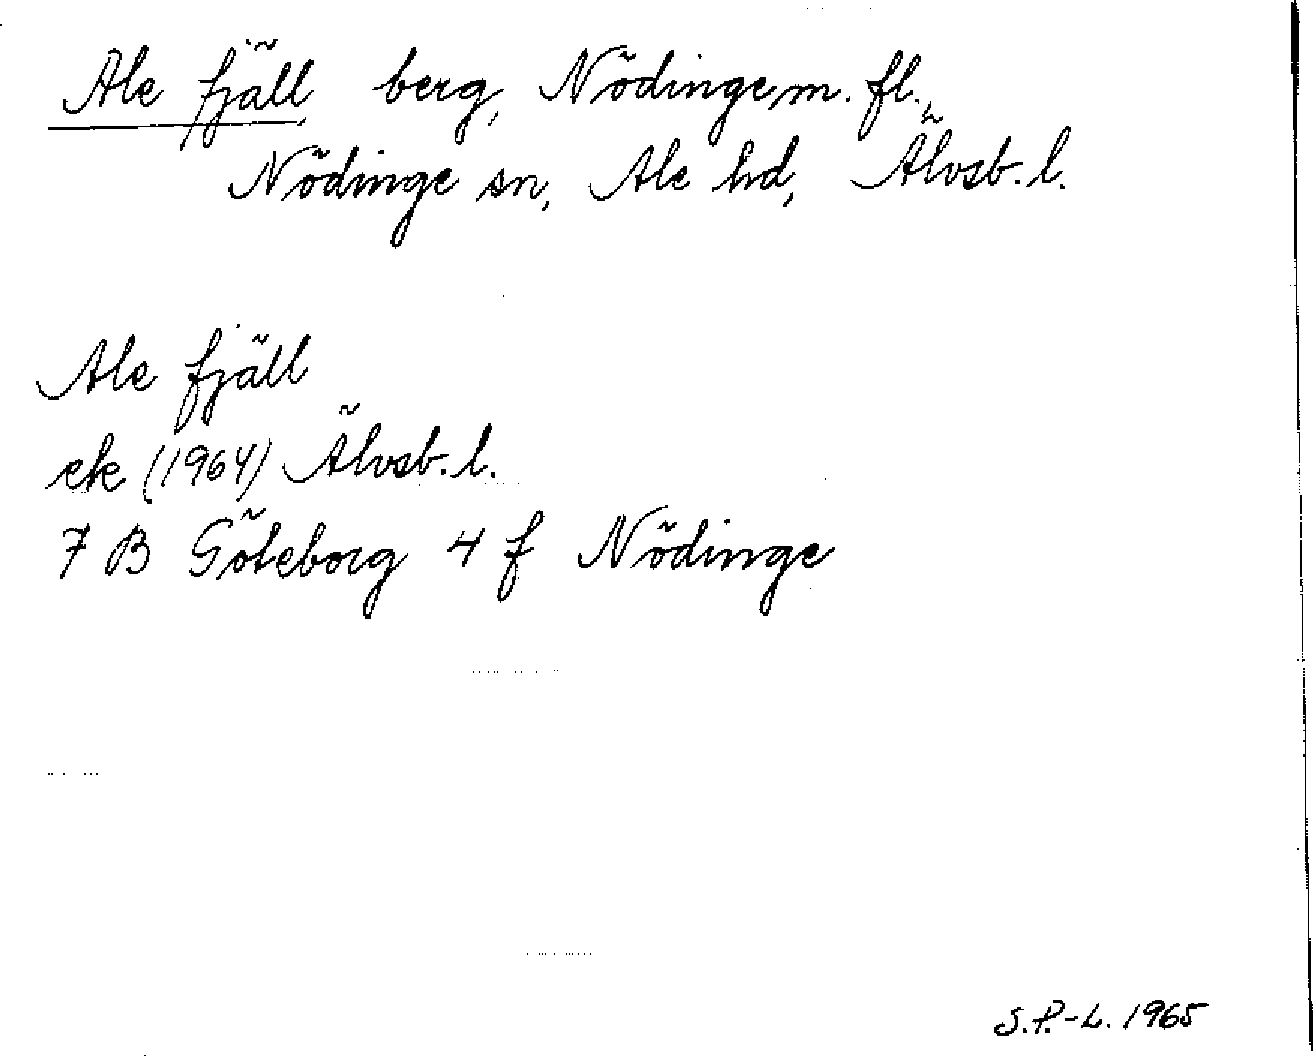 Ale fjäll berg, Nödinge m. fl.,
Nödinge sn, Ale hd, Älvsb. l.
Ale fjäll
ek (1964) Älvsb. l.
7 B Göteborg 4 f Nödinge
S.P.-L. 1965